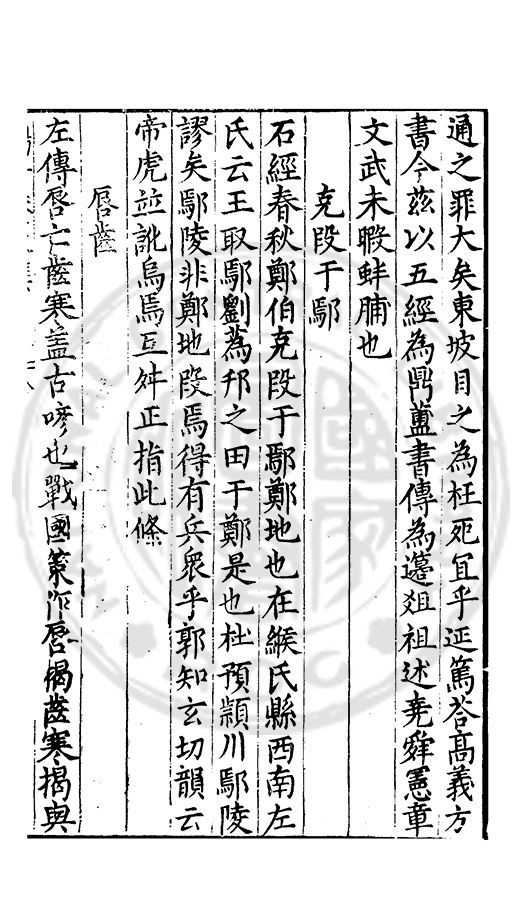 通之罪大矣東坡目之為枉死宜乎延篤荅高義方
書今茲以五經為鼎藎書傳為籩俎祖述堯舜憲章
文武未暇蚌脯也
克段于鄢
石經春秋鄭伯克段于鄢鄭地也在緱氏縣西南左
氏云王取鄔劉蒍邘之田于鄭是也杜預頴川鄢陵
謬矣鄢陵非鄭地段焉得有兵衆乎郭知玄切韻云
帝虎竝訛烏焉互舛正指此條
唇齒
左傳唇亡齒寒盖古喭也戰國策作唇揭齒寒揭與